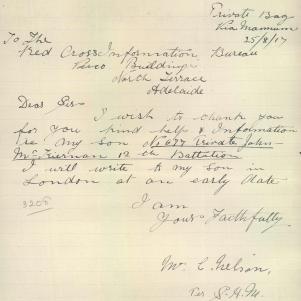 Private Bag
Via Mannum
25/8/17
To The
Red Cross Information Bureau
Buildings
North Terrace
Adelaide
Dear Sir
I wish to thank you
for you kind help & Information
re my son Private John
McTiernan 12th Battalion
I will write to my son in
London at an early date
I am
Yours Faithfully
3208
Mr C. Nelson,
Per S.H.M.